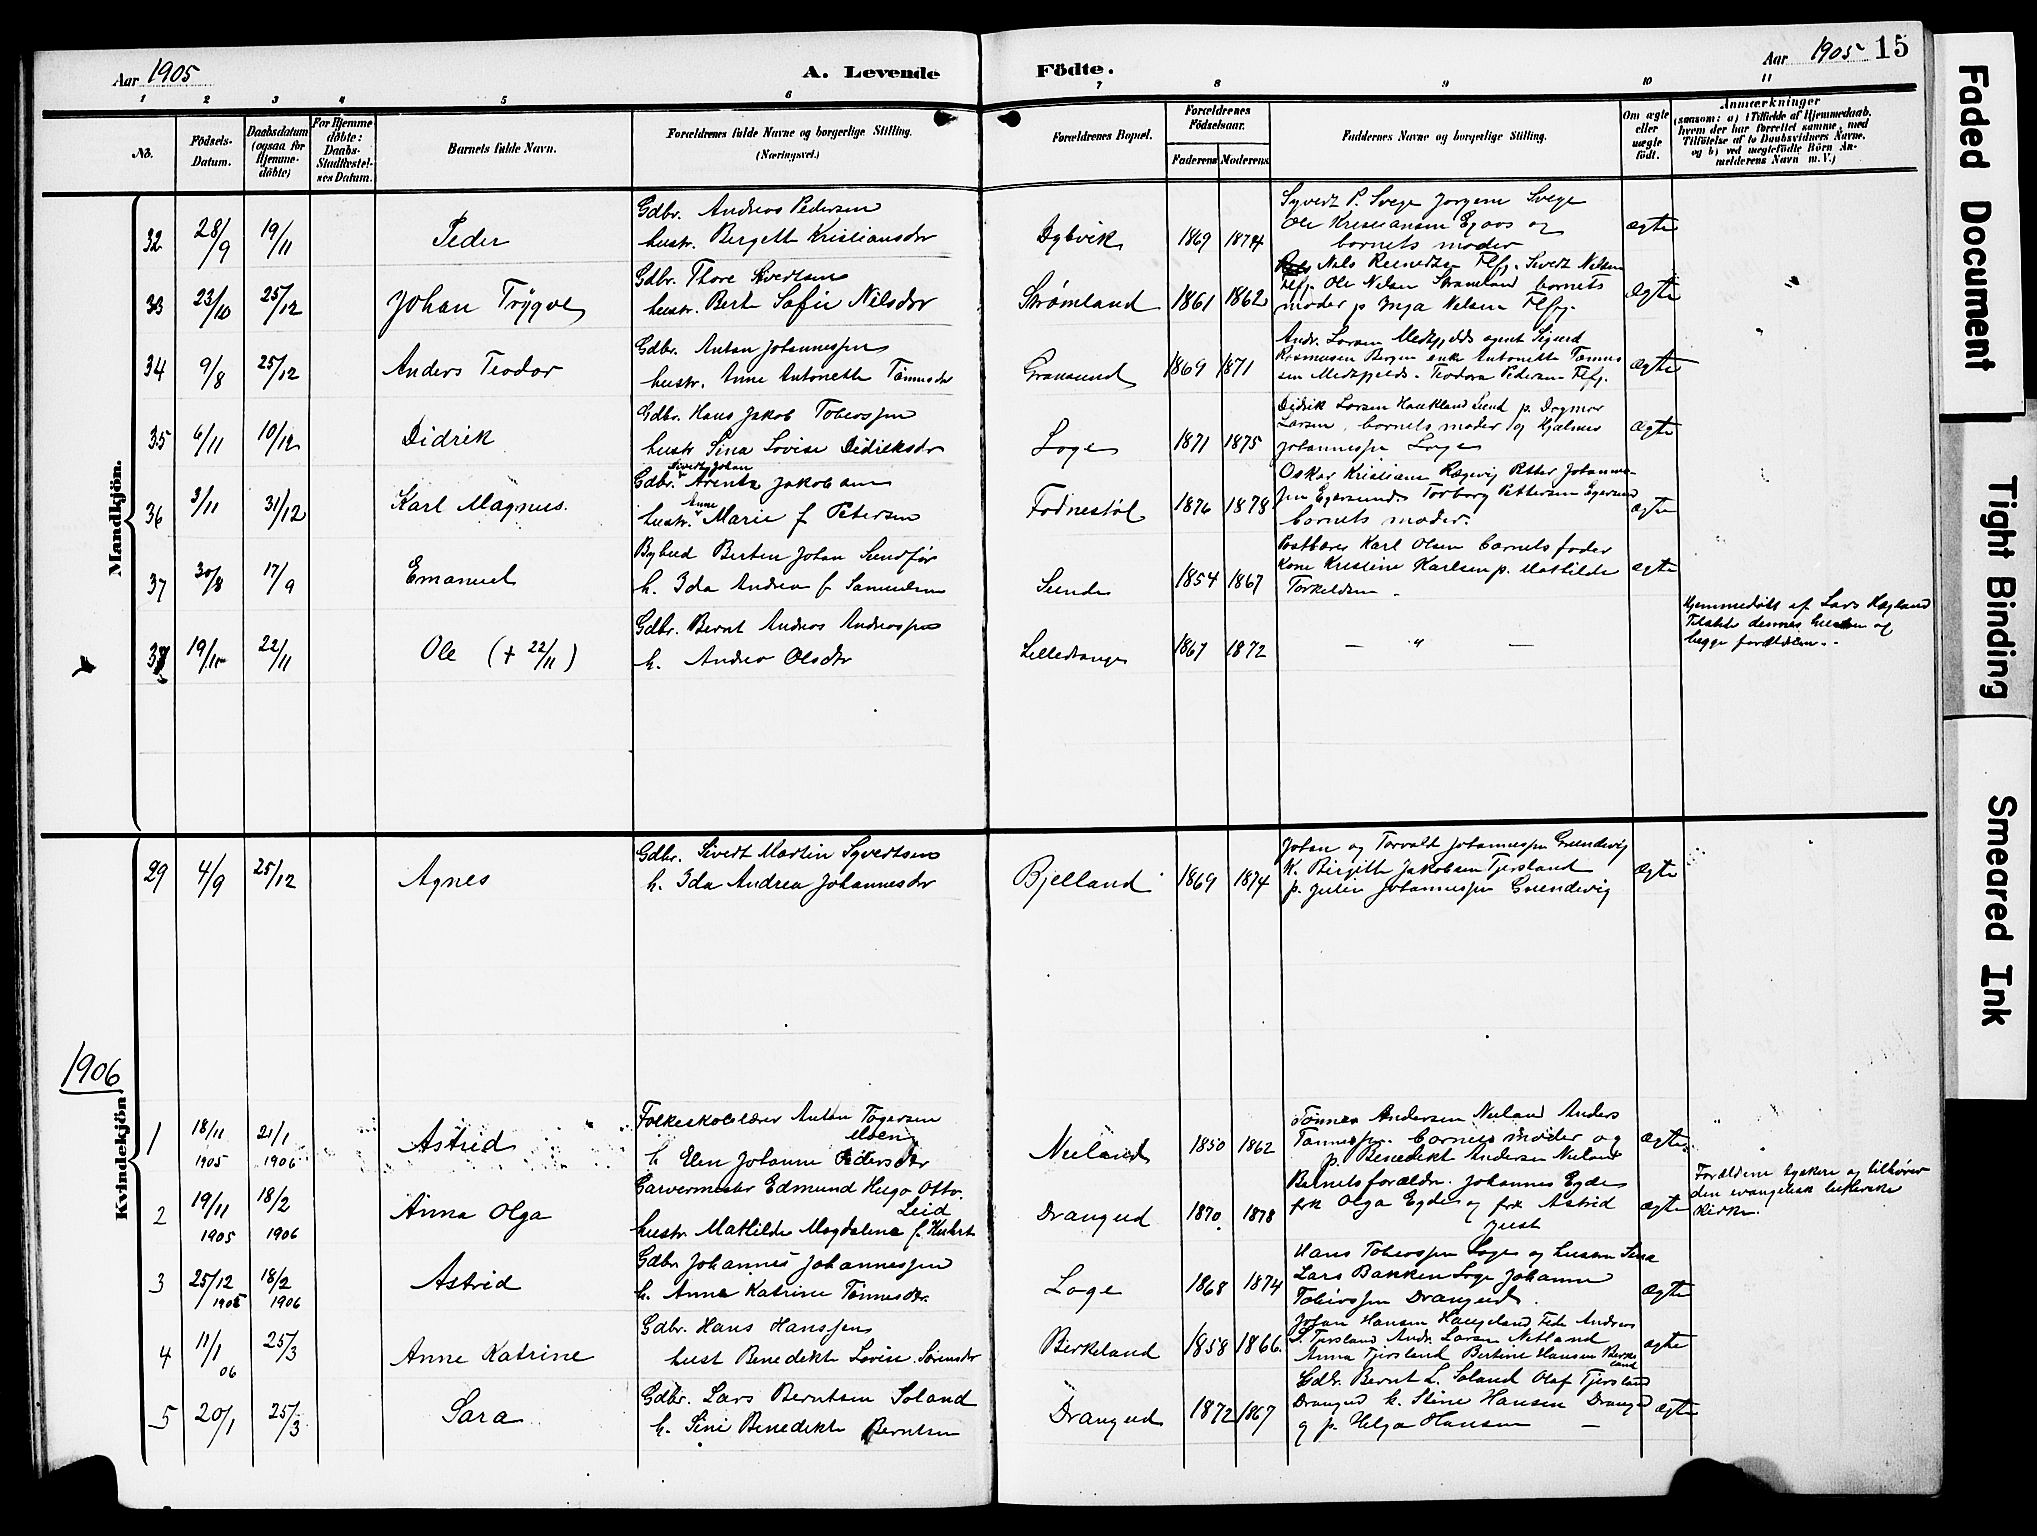 Aar 1905
A. Levende
Födte.
Aar 1905 15
1 2 3 4 5 6 7 8 9 10 11
No.
Födsels-
Datum.
Daabsdatum
(ogsaa for
Hjemme-
döbte)
For Hjemme-
döbte:
Daabs-
Stadfæstel-
ses Datum.
Barnets fulde Navn.
Forældrenes fulde Navne og borgerlige Stilling.
(Næringsvei.)
Forældrenes Bopæl.
Forældrenes
Födselsaar.
Faderens Moderens
Faddernes Navne og borgerlige Stilling.
Om ægte
eller
uægte
födt.
Anmærkninger
(saasom: a) i Tilfælde af Hjemmedaab,
hvem der har forrettet samme, med
Tilföielse af to Daabsvidners Navne.
og b) ved uægtefödte Börn An-
melderens Navn m. V.)
Mandkjön.
32 28/9 19/11 Peder
Gdbr. Andreas Pedersen
hustr. Bergette Kristiansdtr
Dybvik 1869 1874
Syvert P. Svege Jorgine Svege
Ole Kristiansen Egaas og
barnets moder
ægte
33 23/10 25/12 Johan Trygve
Gdbr. Thore Sivertsen
hustr. Berte Sofie Nilsdtr
Strømland 1861 1862
Nils Reinertsen Flfj. Sivert Nilsen
Flfj. Ole Nilsen Strømland barnets
moder p Inga Nilsen Flfj.
ægte
34 9/8 25/12 Anders Teodor
Gdbr. Anton Johannessen
hustr. Anne Antonette Tønnesdtr
Gransund 1869 1871
Andr. Larsen Medhjeld agent Sigurd
Rasmussen Bergen enke Antonette Tønnes
sen Teodora Pedersen Flfj.
ægte
35 6/11 10/12 Didrik
Gdbr. Hans Jakob Tobiassen
hustr Sina Lovise Didriksdtr
Loge 1871 1875
Didrik Larsen Haukland Sund p. Dagmar
Larsen, barnets moder og Hjalmar
Johannessen Loge
ægte
36 3/11 31/12 Karl Magnus.
Sivert Johan
Gdbr. Arentz Jakobsen
Anne
hustr. Marie f Petersen
Fodnestøl 1876 1878
Oskar Kristiansen Rægevig Petter Johannes-
sen Egersund Torborg Pettersen Egersund
barnets moder.
ægte
37 30/8 17/9 Emanuel
Bybud Berten Johan Sundfør
h. Ida Andrea f Samuelsen
Sunde 1854 1867
Postbærer Karl Olsen barnets fader
Kone Kristine Karlsen p. Matilde
Torkeldsen.
ægte
38 19/10 22/11 Ole (+ 22/11)
Gdbr. Bernt Andreas Andreassen
h. Andrea Olsdtr
Lilledrange 1867 1872
— " —
Hjemmedøbt af Lars Hægland
Tilstede dennes hustru og
begge forældrene.
29 4/9 25/12 Agnes
Gdbr. Sivert Martin Syvertsen
h. Ida Andrea Johannesdtr
Bjelland 1869 1874
Johan og Torvald Johannessen Grundevig
K. Birgitte Jakobsen Tjersland
p. Julie Johannessen Grundevig
ægte
1906
Kvindekjön
1 18/11 1905 21/1 1906 Astrid
Folkeskolelærer Anton Tøgersen
Moen
h. Elen Johanne Pedersdtr
Nuland 1850 1862
Tønnes Andersen Nuland Anders
Tønnessen. barnets moder og
p. Benedikte Andersen Nuland
ægte
2 19/11 1905 18/2 1906 Anna Olga
Garvermester Edmund Hugo Otto
Leid
hustr. Mathilde Magdalena f.
Drangeid 1870 1878
Barnets forældre. Johannes Egde
frk Olga Egde og frk Astrid
Just
ægte
Forældrene tyskere og tilhører
den evangelisk lutherske
Kirke.
3 25/12 1905 18/2 1906 Astrid
Gdbr Johannes Johannessen
h. Anna Katrine Tønnesdtr.
Loge 1868 1874
Hans Tobiassen Loge og hustru Sina
Lars Bakken Loge Johanne
Tobiassen Drangeid.
ægte
4 11/1 06 25/3 Anne Katrine
Gdbr. Hans Hanssen
hust Benedikte Lovise Sørensdtr
Birkeland 1858 1866.
Johan Hansen Haugeland Feda Andreas
S. Tjersland Andr. Larsen Netland
Anna Tjersland Bertine Hansen Birke
land
ægte
5 20/1 25/3 Sara
Gdbr. Lars Berntsen Soland
h. Sine Benedikte Berntsen
Drangeid 1872 1867
Gdbr. Bernt L. Soland Olaf Tjersland
Drangeid k. Stine Hansen Drangeid
og p. Helga Hansen —
ægte
Faded Document
Tight Binding
Smeared Ink